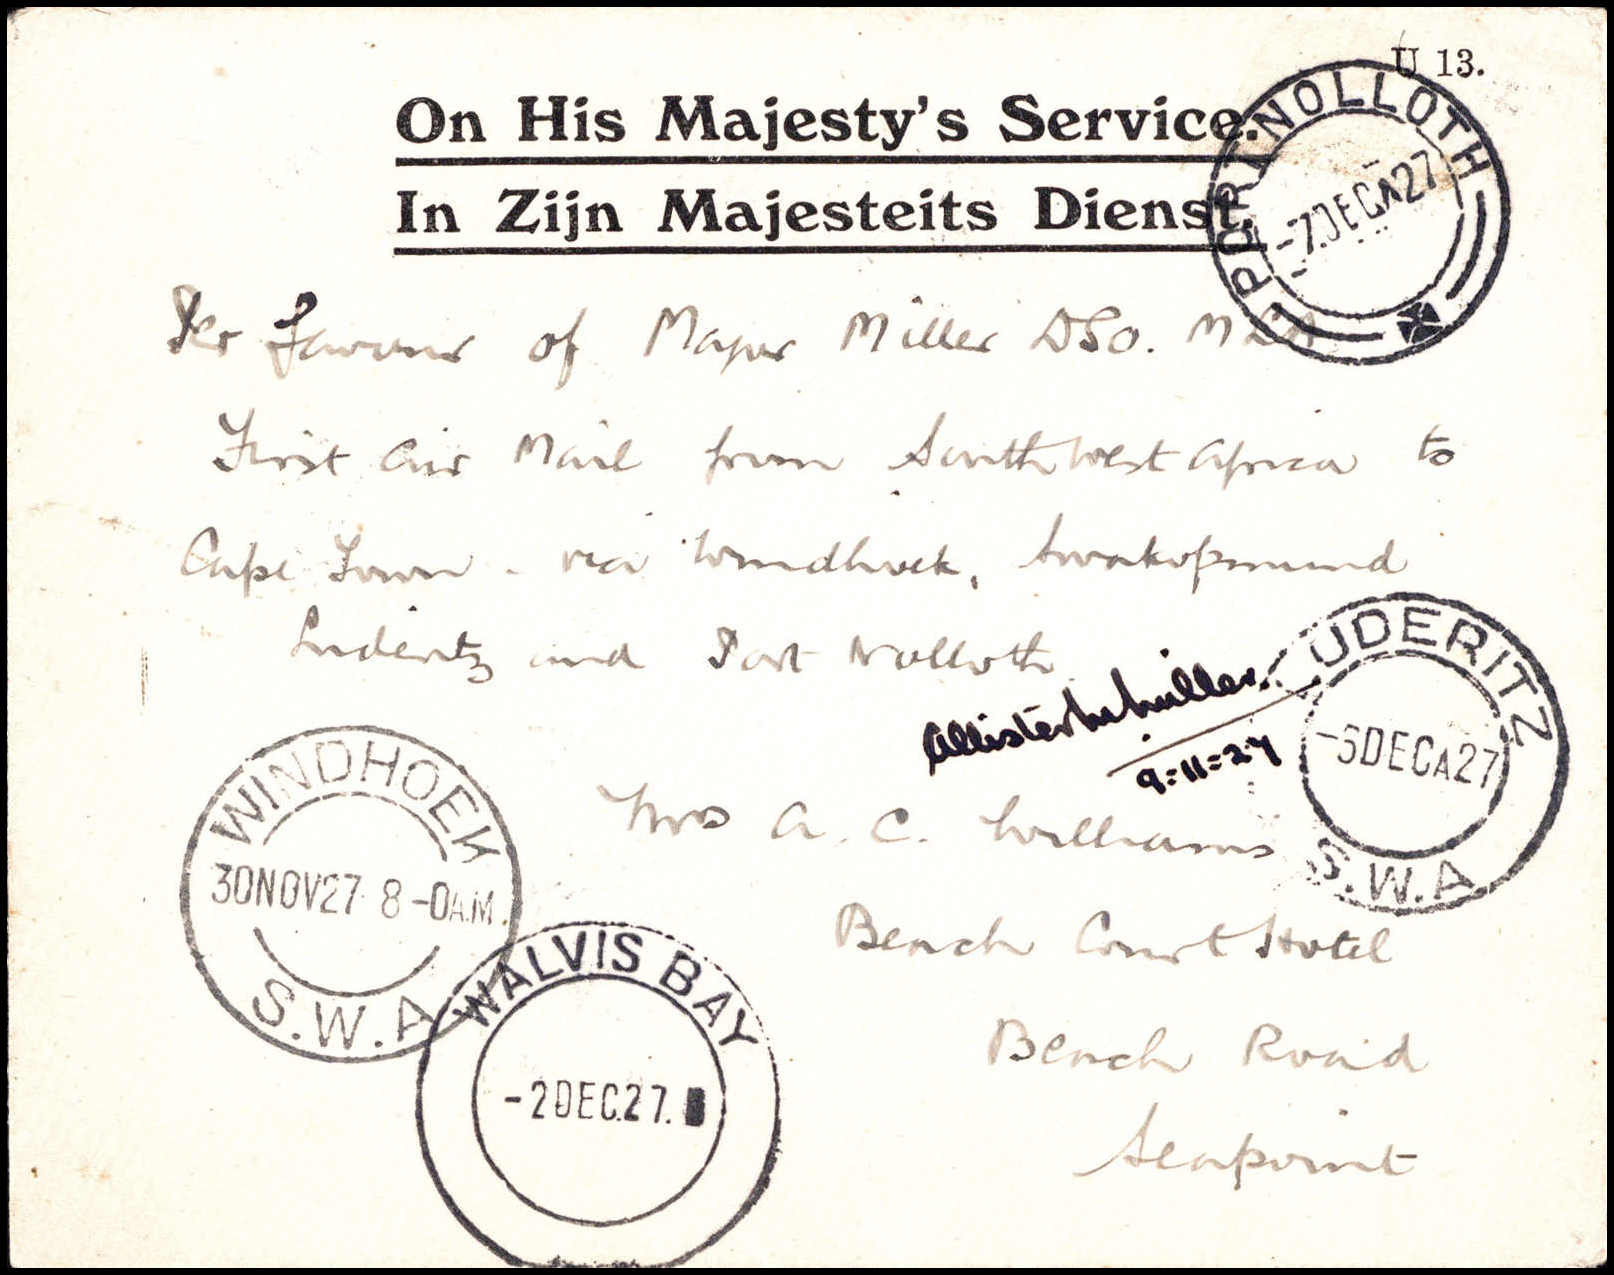 U 13.
On His Majesty's Service.
In Zijn Majesteits Dienst.
PORT NOLLOTH
-7.DEC A27
Per Favour of Major Miller DSO. MLA
First Air Mail from South West Africa to
Cape Town - via Windhoek, Swakopmund
Luderitz and Port Nolloth
Allister M Miller.
9=11=27
LUDERITZ
-5DEC A27
S.W.A
Mrs A. C. Williams
Beach Court Hotel
Beach Road
Seapoint
WINDHOEK
30NOV27 8-0A.M.
S.W.A
WALVIS BAY
-2DEC.27.